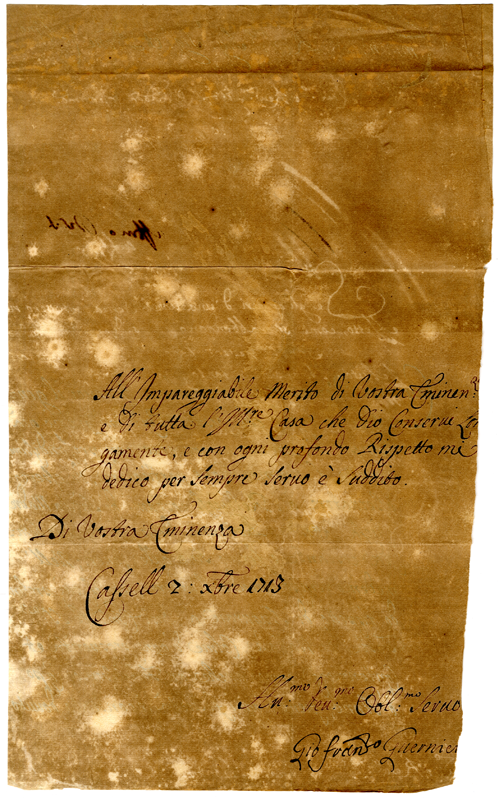 All Impareggiabile Merito di Vostra Eminen.
e di tutta l'Ill.tre Casa che Dio Conservi Lon
gamente, e con ogni profondo Rispetto mi
dedico per sempre servo è suddito.
Di Vostra Eminenza
Cassell 2: xbre 1713
Hu.mo Deu.mo Obl.mo Servo
Gio Fran.co Guernier